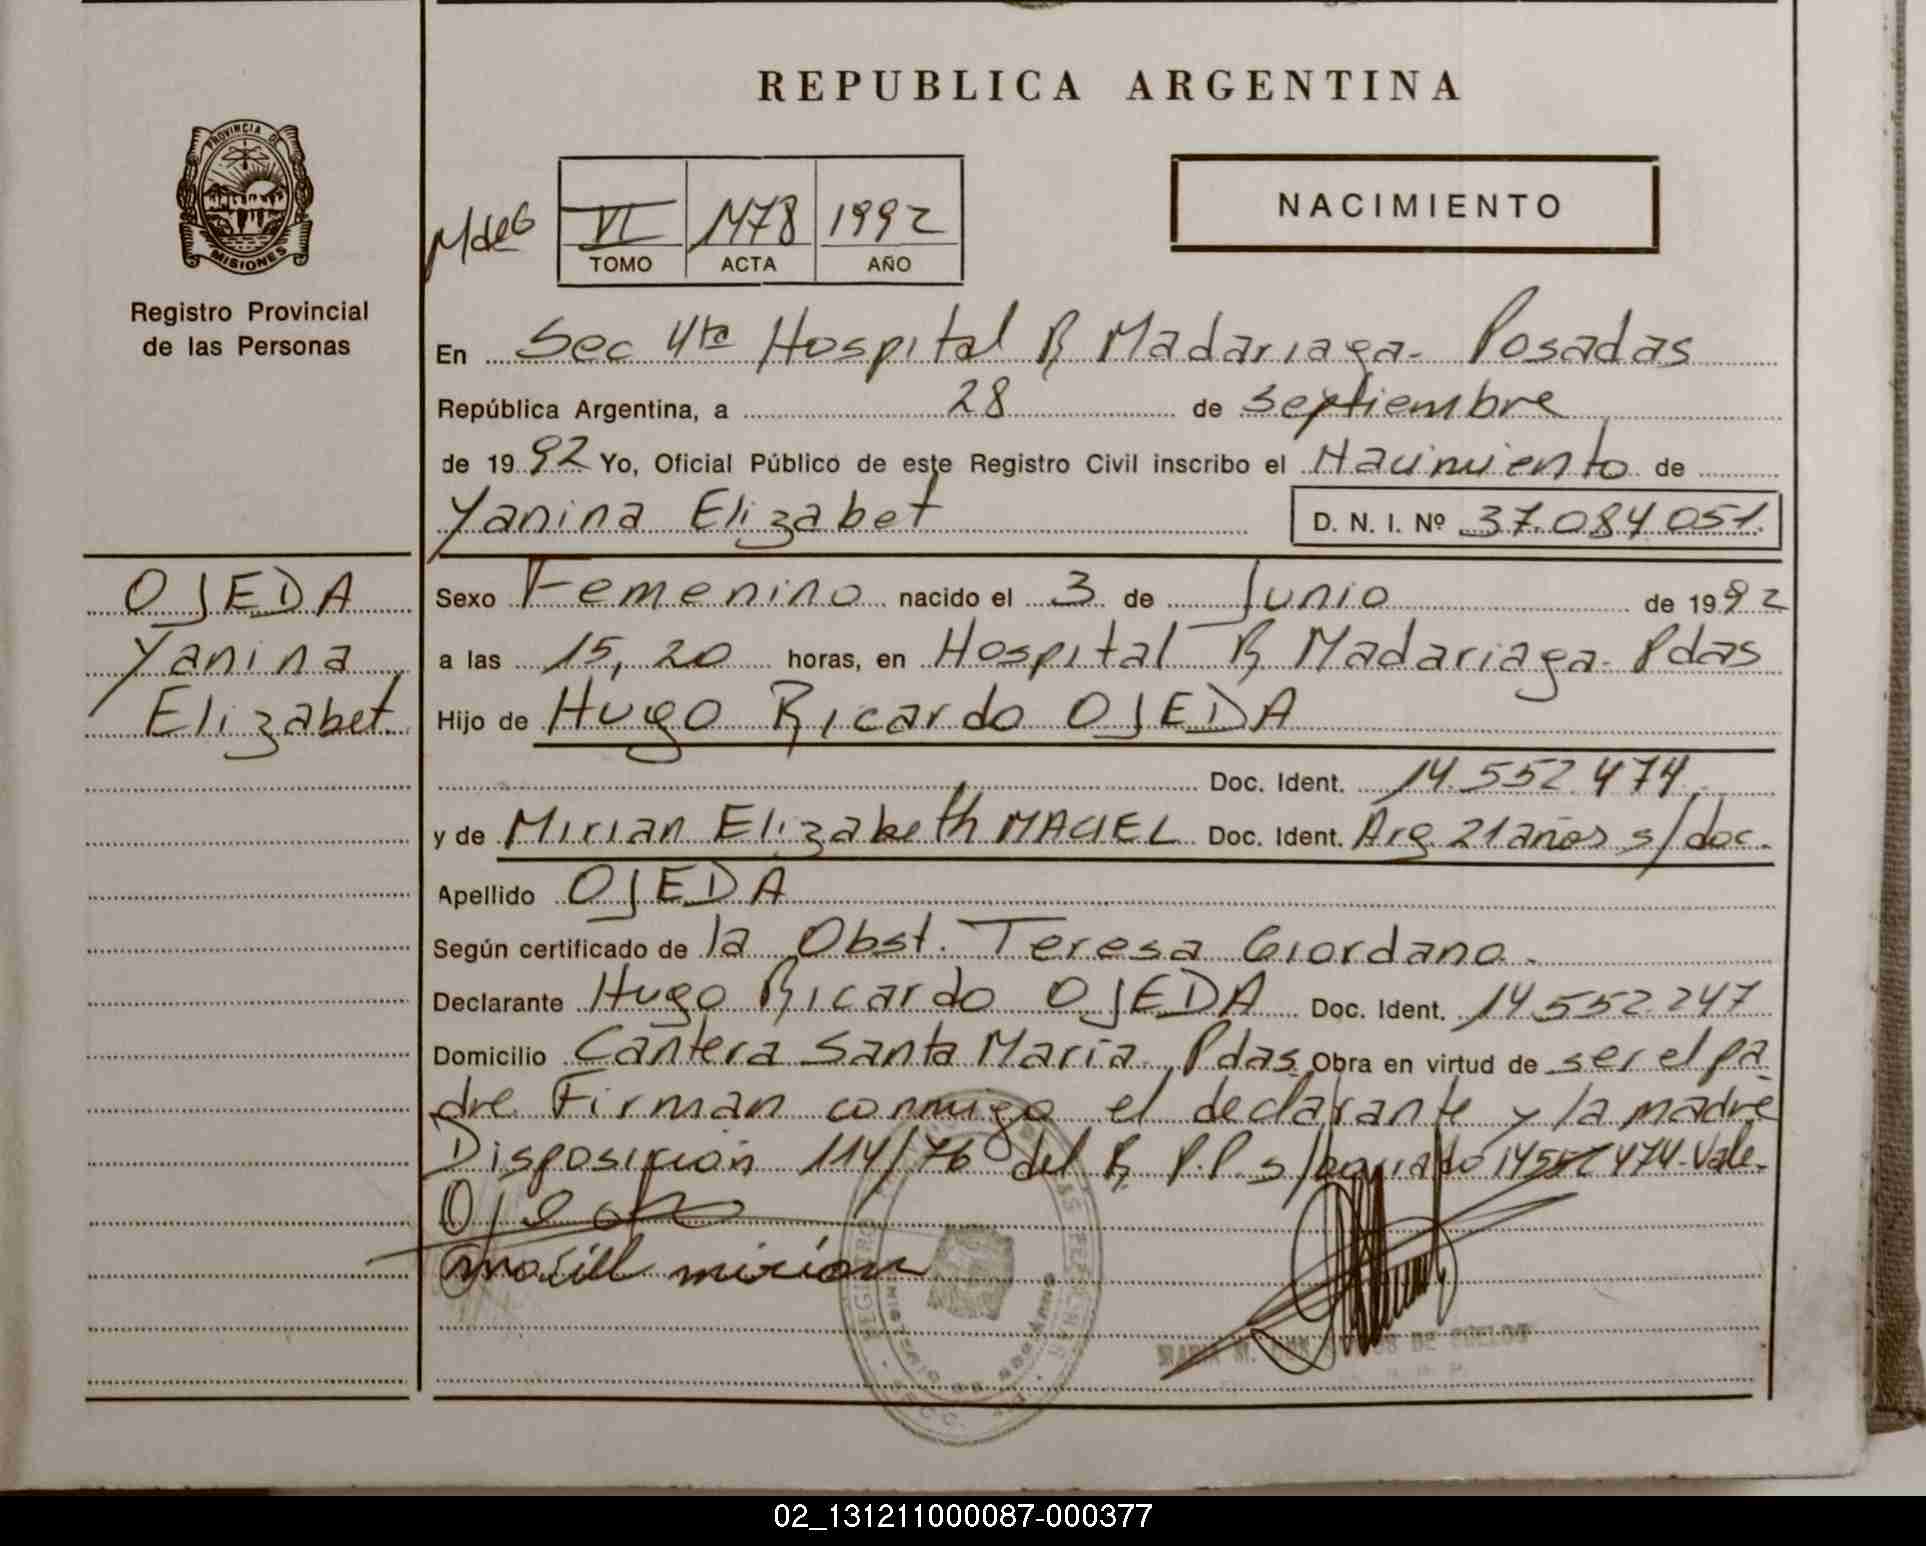 REPUBLICA ARGENTINA
PROVINCIA DE
MISIONES
Registro Provincial
de las Personas
NACIMIENTO
VI 1478 1992
TOMO ACTA AÑO
En Sec 4ta Hospital R Madariaga- Posadas
República Argentina, a 28 de Septiembre
de 1992 Yo, Oficial Público de este Registro Civil inscribo el Nacimiento de
Yanina Elizabet D. N. I. Nº 37.084.051.
OJEDA
Yanina
Elizabet.
Sexo Femenino nacido el 3 de Junio de 1992
a las 15,20 horas, en Hospital R Madariaga- Pdas
Hijo de Hugo Ricardo OJEDA
Doc. Ident. 14.552.474.
y de Mirian Elizabeth MACIEL Doc. Ident. Arg. 21 años s/doc.
Apellido OJEDA
Según certificado de la Obst. Teresa Giordano.
Declarante Hugo Ricardo OJEDA Doc. Ident. 14.552.247
Domicilio Cantera Santa María Pdas. Obra en virtud de ser el pa
dre Firman conmigo el declarante y la madre
Disposición 114/76 del R. P.P. s/ 14552474-Vale.
mirian
02_131211000087-000377